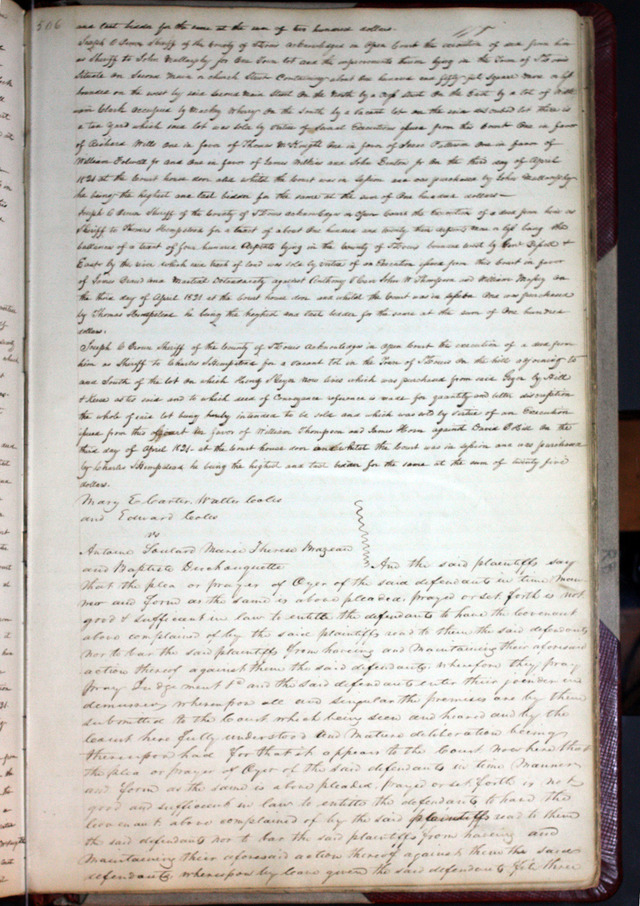 506
and last bidder for the same at the sum of two hundred dollars.
Joseph C Brown Sheriff of the County of St Louis acknowledges in Open Court the execution of a deed from him
as Sheriff to John Mullanphy for One Town lot and the improvements thereon lying in the Town of St Louis
Situate on Second Main or Church Street Containing about One hundred and fifty feet Square more or less
bounded on the west by said Second Main Street On the North by a cross street On the East by a lot of Will
iam Clark occupied by Wherry On the South by a vacant lot on the said described lot there is
a tan yard which said lot was sold by virtue of Several Executions issued from this Court One in favor
of Richard Wells One in favor of Thomas One in favor of Isaac One in favor of
William Jr and One in favor of Wilkins and John Jr On the third day of April
1821 at the Court house door and whilst the Court was in session and was purchased by John Mullanphy
he being the highest and last bidder for the same at the sum of One hundred dollars
Joseph C Brown Sheriff of the County of St Louis acknowledges in Open Court the execution of a deed from him as
Sheriff to Thomas Hempstead for a tract of about One hundred and twenty three arpents more or less being the
ballance of a tract of four hundred Arpents lying in the County of St Louis bounded west by
East by the river which said tract of land was sold by virtue of an Execution issued from this Court in favor
of against Anthony John W Thompson and William On
the third day of April 1821 at the Court house door and whilst the Court was in session and was purchased
by Thomas Hempstead he being the highest and last bidder for the same at the sum of One hundred
dollars.
Joseph C Brown Sheriff of the County of St Louis Acknowledges in Open Court the execution of a deed from
him as Sheriff to Charles S Hempstead for a vacant lot in the Town of St Louis on the hill adjoining to
and South of the lot on which now lives which was purchased from said by Hill
& as is said and to which deed of Conveyance reference is made for quantity and better discription
the whole of said lot being hereby intended to be sold and which was sold by virtue of an Execution
issued from this Court in favor of William Thompson and James against David On the
third day of April 1821 at the Court house door and whilst the Court was in session and was purchased
by Charles S Hempstead he being the highest and last bidder for the same at the sum of twenty five
dollars.
Mary E Carter, Walter Coles
and Edward Coles
vs
Antoine Soulard Marie Therese Mazeau
and Baptiste Derchauquette And the said plaintiffs say
that the plea or prayer of Oyer of the said defendants in time man
ner and form as the same is above pleaded prayed or set forth is not
good & sufficient in law to entitle the defendants to have the Covenant
above complained of by the said plaintiffs read to them the said defendants
nor to bar the said plaintiffs from having and maintaining their aforesaid
action thereof against them the said defendants, wherefore they pray
pray Judgement &c and the said defendants enter their joinder in
demurrer, whereupon all and singular the premises are by them
submitted to the Court which being seen and heard and by the
Court here fully understood and mature deliberation being
thereupon had for that it appears to the Court now here that
the plea or prayer of Oyer of the said defendants in time manner
and form as the same is above pleaded, prayed or set forth is not
good and sufficient in law to entitle the defendants to have the
Covenant above complained of by the said plaintiffs read to them
the said defendants nor to bar the said plaintiffs from having and
maintaining their aforesaid action thereof against them the said
defendants. whereupon by leave given the said defendants file three